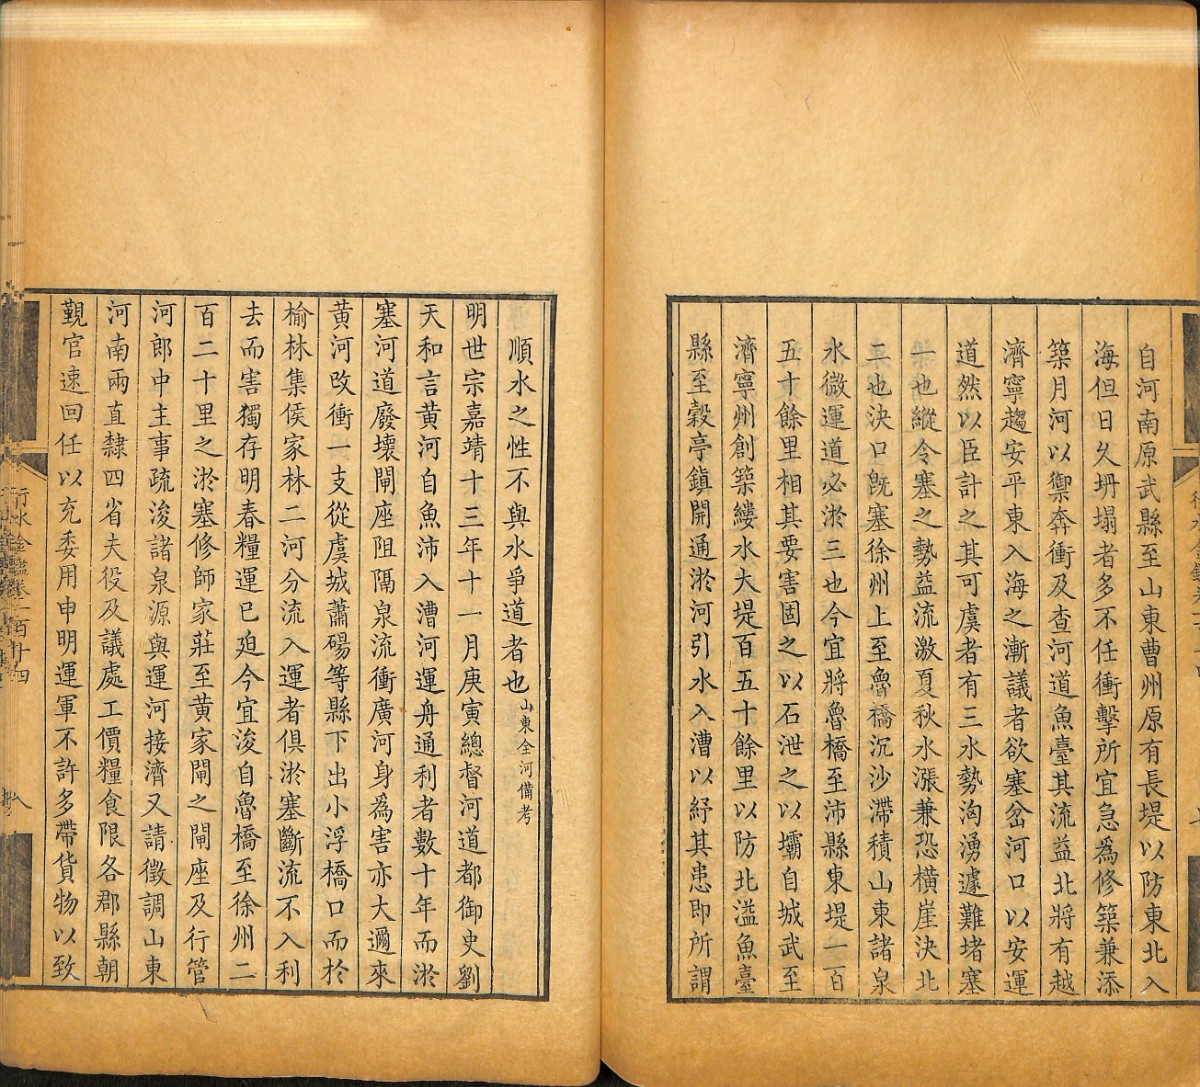 自河南原武縣至山東曹州原有長堤以防東北入
海但日久坍塌者多不任衝擊所宜急為修築兼添
築月河以禦奔衝及查河道魚臺其流益北將有越
濟寧趨安平東入海之漸議者欲塞岔河口以安運
道然以臣計之其可虞者有三水勢洶湧遽難堵塞
一也縱令塞之勢益流激夏秋水漲兼恐橫崖決北
二也決口既塞徐州上至魯橋沉沙滯積山東諸泉
水微運道必淤三也今宜將魯橋至沛縣東堤一百
五十餘里相其要害固之以石泄之以壩自城武至
濟寧州創築縷水大堤百五十餘里以防北溢魚臺
縣至穀亭鎮開通淤河引水入漕以紓其患即所謂
順水之性不與水爭道者也山東全河備考
明世宗嘉靖十三年十一月庚寅總督河道都御史劉
天和言黄河自魚沛入漕河運舟通利者數十年而淤
塞河道廢壞閘座阻隔泉流衝廣河身為害亦大邇來
黄河改衝一支從虞城蕭碭等縣下出小浮橋口而於
榆林集侯家林二河分流入運者俱淤塞斷流不入利
去而害獨存明春糧運已廹今宜浚自魯橋至徐州二
百二十里之淤塞修師家莊至黄家閘之閘座及行管
河郎中主事疏浚諸泉源與運河接濟又請徵調山東
河南兩直隸四省夫役及議處工價糧食限各郡縣朝
覲官速回任以充委用申明運軍不許多帶貨物以致
行水金鑑卷一百十四